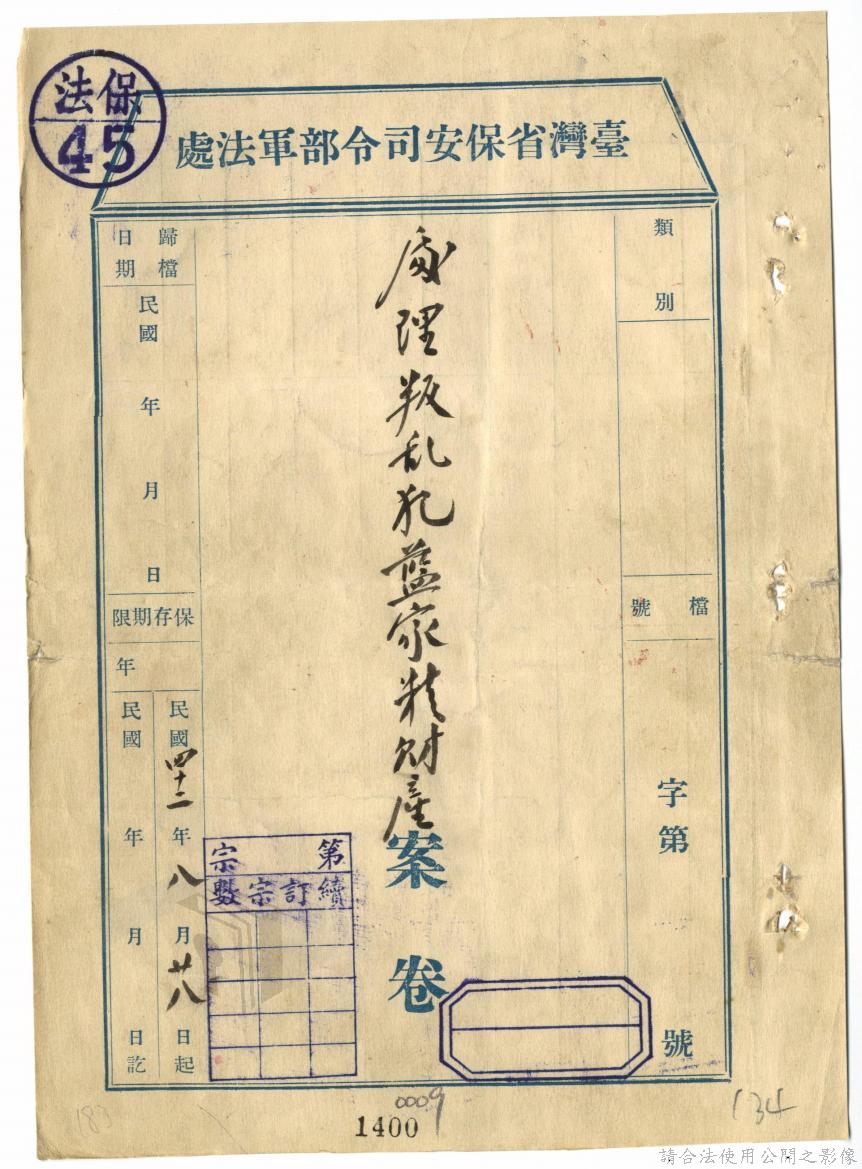 法保
45
處法軍部令司安保省灣臺
類別
檔號
字第
號
處理叛乱犯藍家精財產
案卷
歸檔日期
民國 年 月 日
保存期限
年
民國四十二年八月廿八日起
民國 年 月 日訖
第 宗
續訂宗數
0009
1400
134
183
請合法使用公開之影像